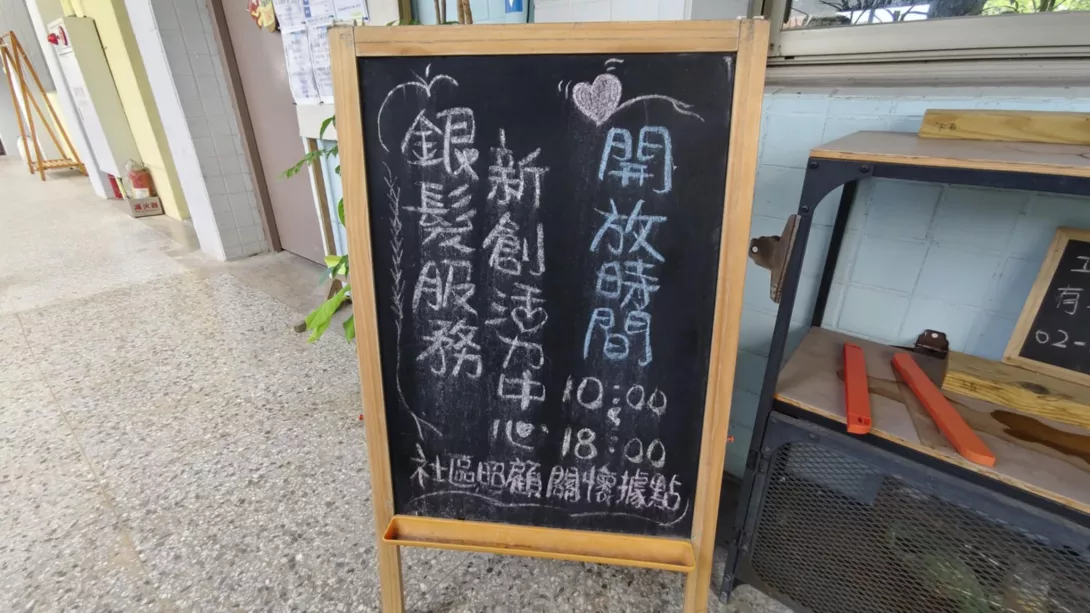 開放時間
10:00
18:00
新創活力中心
銀髮服務
社區照顧關懷據點
滅火器
工
有
02-